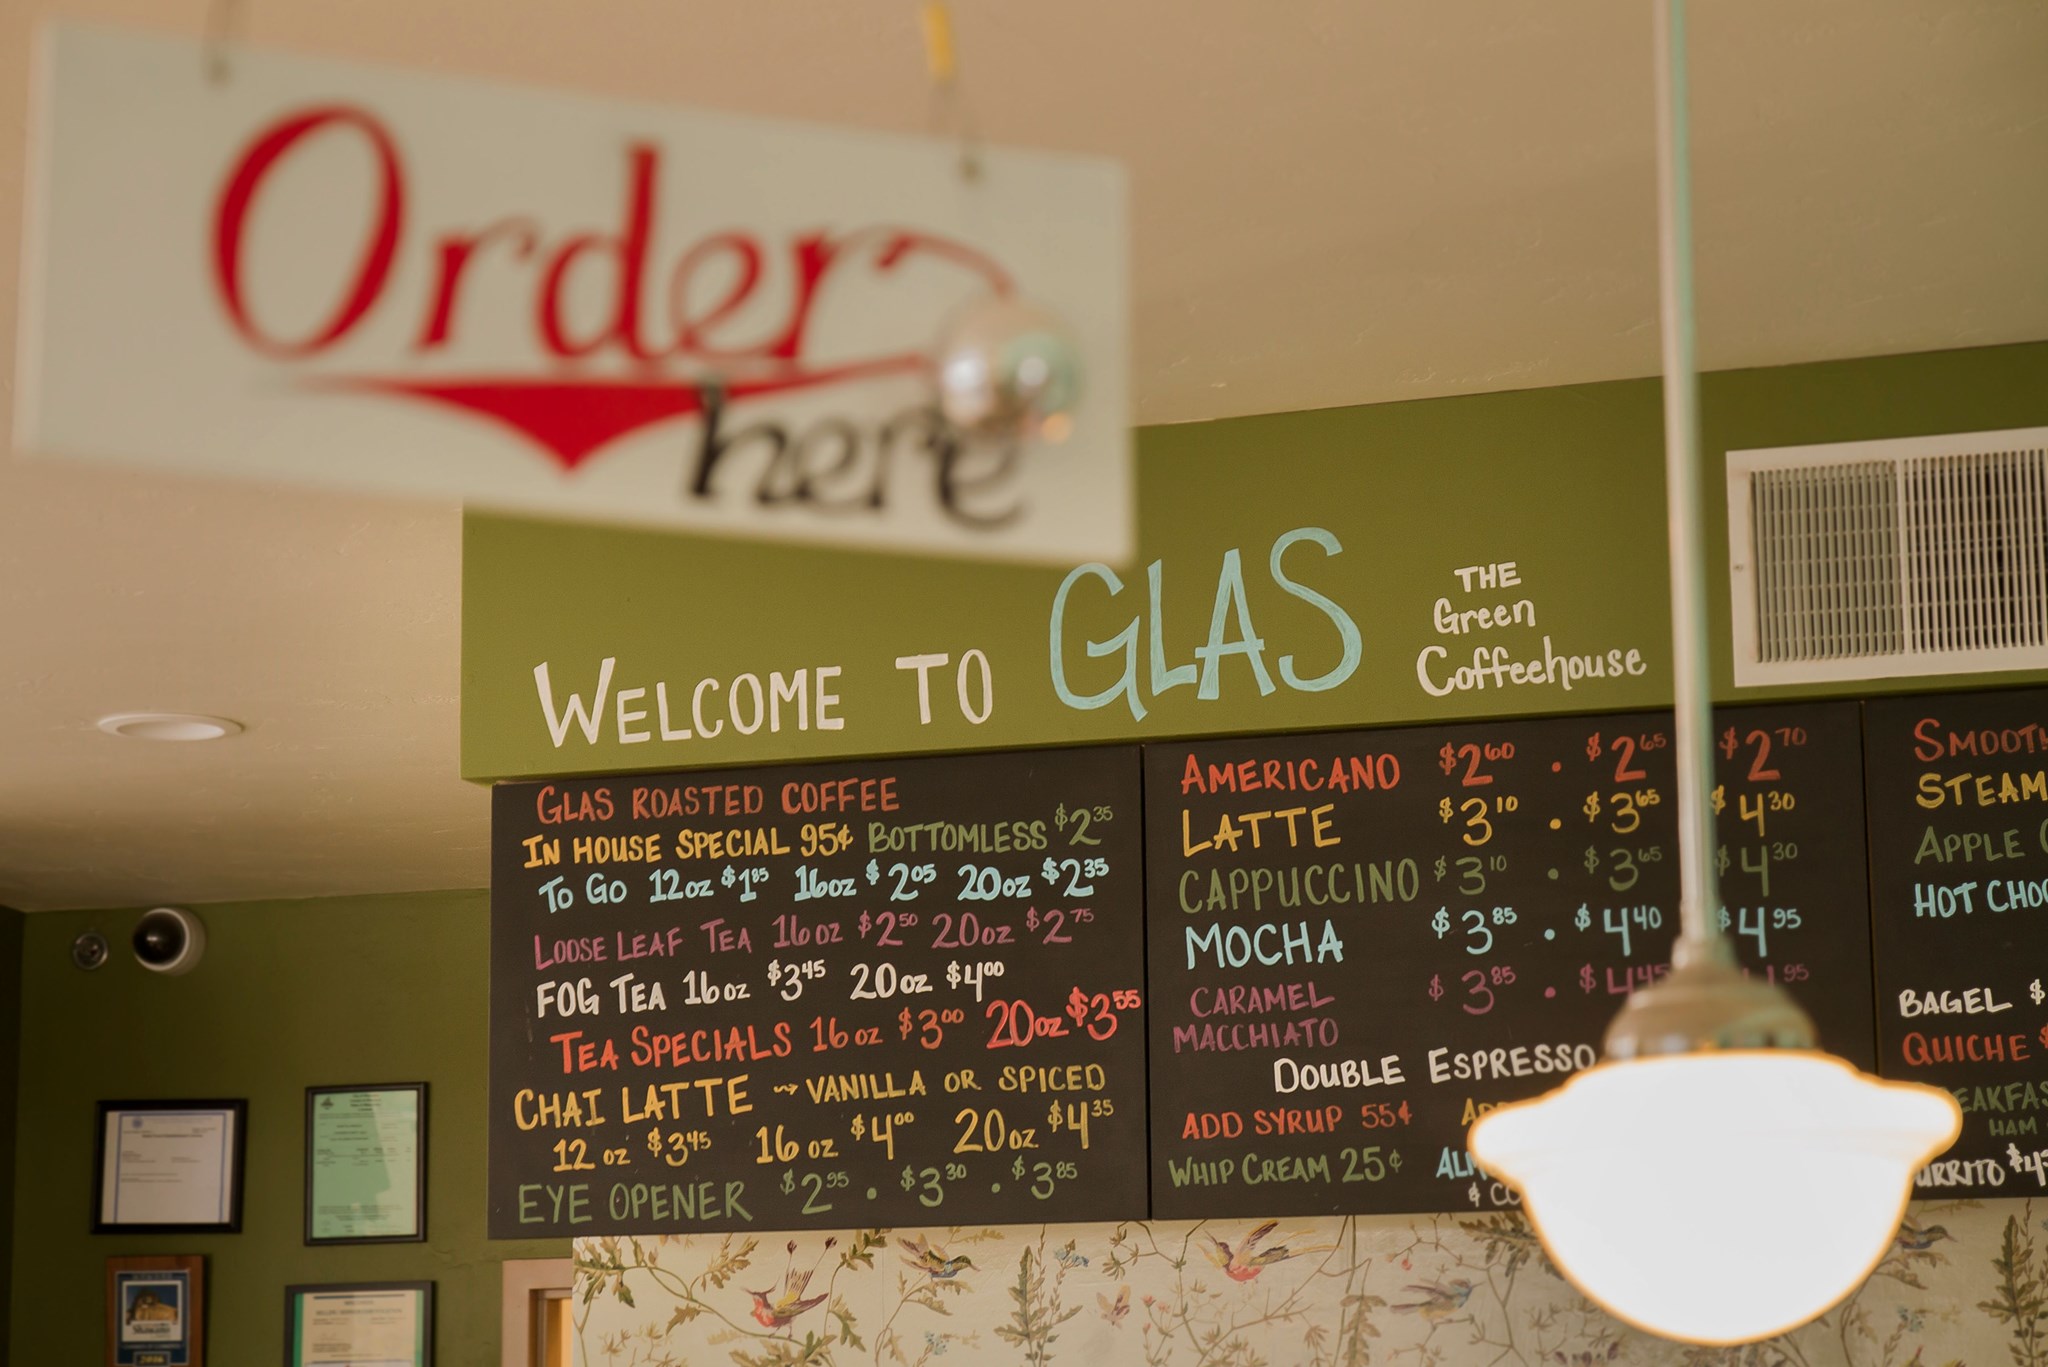 Order
here
WELCOME TO GLAS
THE
Green
Coffeehouse
GLAS ROASTED COFFEE
IN HOUSE SPECIAL 95¢ BOTTOMLESS $2.35
TO GO 12oz $1.85 16oz $2.05 20oz $2.35
LOOSE LEAF TEA 16oz $2.50 20oz $2.75
FOG TEA 16oz $3.45 20oz $4.00
TEA SPECIALS 16oz $3.00 20oz $3.55
CHAI LATTE ⇝ VANILLA OR SPICED
12 oz $3.45 16 oz $4.00 20oz $4.35
EYE OPENER $2.95 · $3.30 · $3.85
AMERICANO $2.60 · $2.65 $2.70
LATTE $3.10 · $3.65 $4.30
CAPPUCCINO $3.10 · $3.65 $4.30
MOCHA $3.85 · $4.40 $4.95
CARAMEL $3.85 · $4.45
MACCHIATO
DOUBLE ESPRESSO
ADD SYRUP 55¢
WHIP CREAM 25¢
STEAM
APPLE
HOT
BAGEL $
QUICHE
HAM
2016